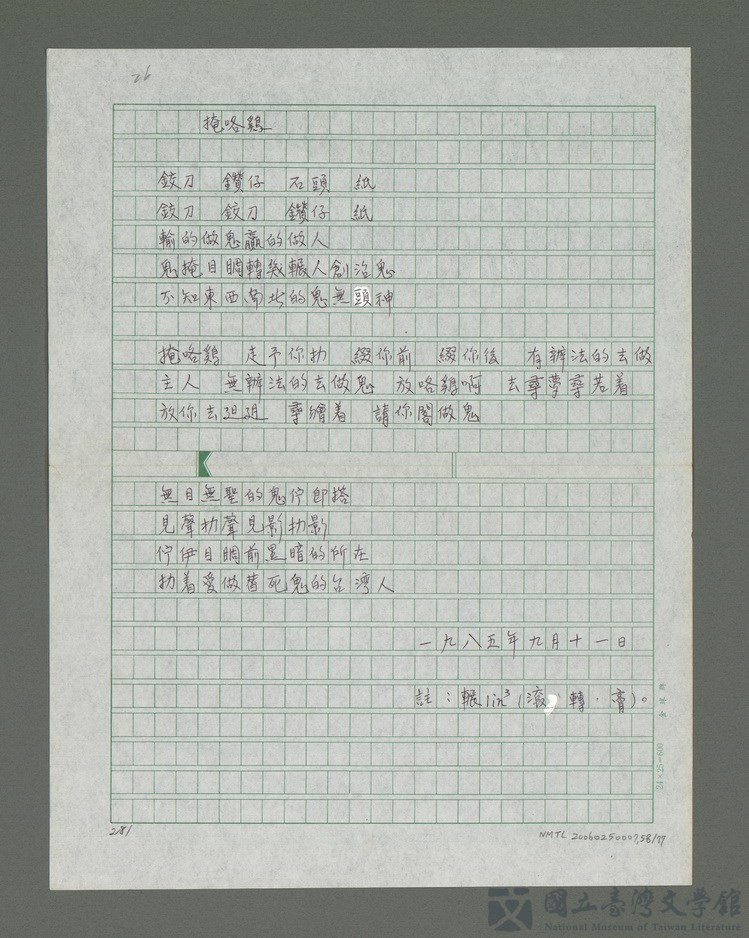 26
掩咯鷄
鉸刀 鑽仔 石頭 紙
鉸刀 鉸刀 鑽仔 紙
輸的做鬼贏的做人
鬼掩目睭轉幾輾人創治鬼
不知東西南北的鬼無頭神
掩咯鷄 走予你扐 綴你前 綴你後 有辦法的去做
主人 無辦法的去做鬼 放咯鷄啊 去尋夢尋若着
放你去𨑨迌 尋䆀着 請你閣做鬼
無目無聖的鬼佇即搭
見聲扐聲見影扐影
佇伊目睭前黑暗的所在
扐着愛做替死鬼的台灣人
一九八五年九月十一日
註：輾lin³(滾，轉，膏)。
24×25=600
281
NMTL 20060250007,58/77
國立臺灣文學館
National Museum of Taiwan Literature